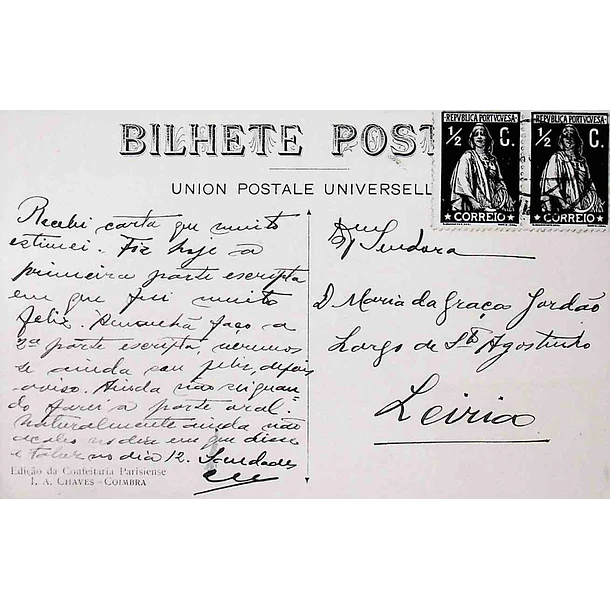 BILHETE POST
REPVBLICA PORTVGVESA
½ C.
CORREIO
REPVBLICA PORTVGVESA
½ C.
CORREIO
UNION POSTALE UNIVERSELL
Recebi carta que muito
estimei. Fiz hoje a
primeira parte escripta
em que fui muito
feliz. Amanhã faço a
2ª parte escripta, veremos
se ainda sou feliz, depois
aviso. Ainda não sei quan
do farei a parte oral.
Naturalmente ainda não
acabo no dia em que disse
e talvez no dia 12. Saudades
Edição da Confeitaria Parisiense
I. A. CHAVES - COIMBRA
Exma Senhora
D. Maria da Graça Jordão
Largo de Sto Agostinho
Leiria